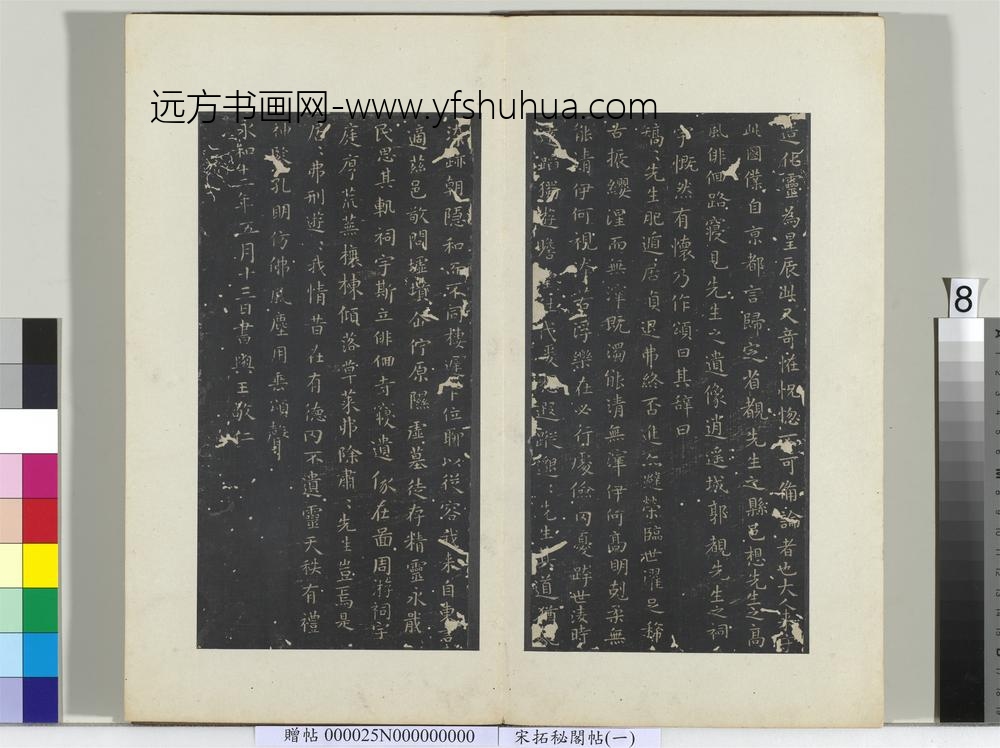 远方书画网-www.yfshuhua.com
造化靈為星辰此又奇怪怳惚不可備論者也大人來守
此國僕自京都言歸定省覩先生之縣邑想先生之高
風俳佪路寢見先生之遺像逍遙城郭觀先生之祠
宇慨然有懷乃作頌曰其辭曰
矯〻先生肥遁居貞退弗終否進亦避榮臨世濯足稀
古振纓涅而無滓既濁能清無滓伊何高明剋柔無
能清伊何視汙若浮樂在必行處儉罔憂跨世淩時
遠蹈獨遊瞻往代爰想遐蹤邈〻先生其道猶
染跡朝隱和而不同棲遲下位聊以從容我來自東言
適茲邑敬問墟墳企佇原隰虛墓徒存精靈永戢
民思其軌祠宇斯立俳佪寺寢遺像在啚周旋祠宇
庭序荒蕪榱棟傾落草萊弗除肅〻先生豈焉是
居〻弗刑遊〻我情昔在有德罔不遺靈天秩有禮
神監孔明仿佛風塵用垂頌聲
永和十二年五月十三日書與王敬仁
8
贈帖 000025N000000000
宋拓秘閣帖(一)